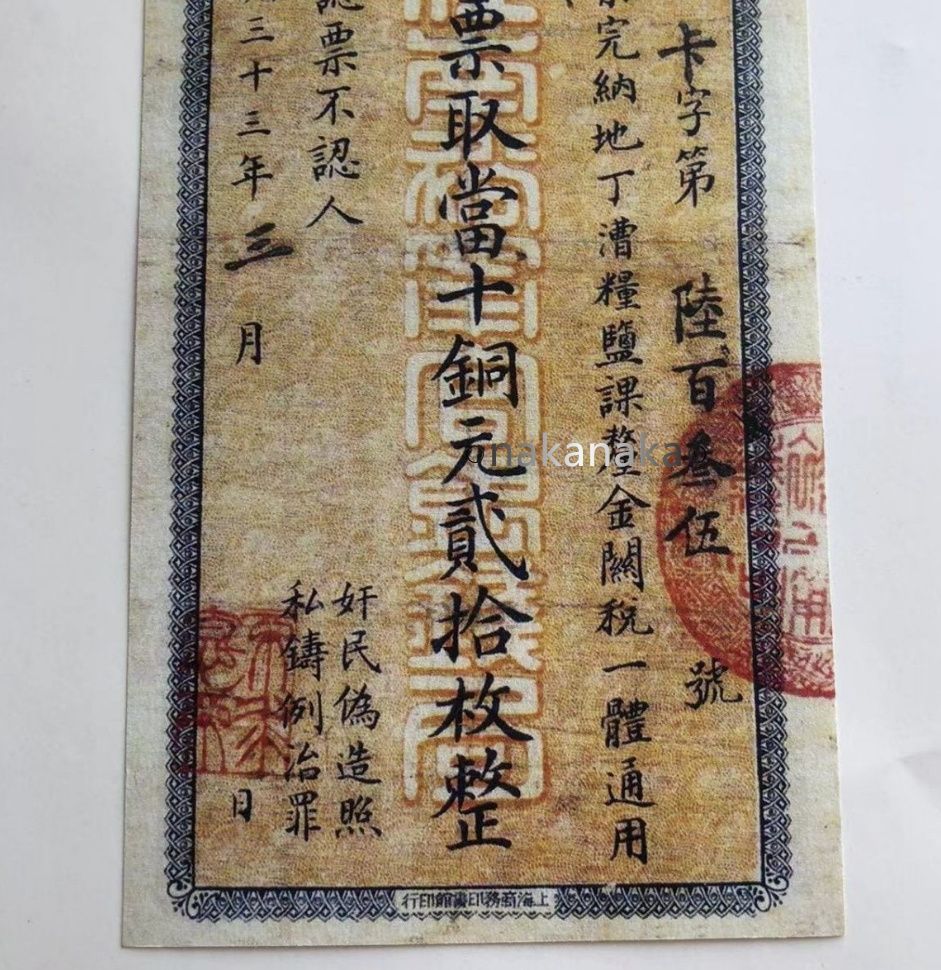 卡字第陸百叁伍號
完納地丁漕糧鹽課釐金關稅一體通用
票取當十銅元貳拾枚整
認票不認人
奸民偽造照
私鑄例治罪
三十三年三月
日
上海商務印書館印行
nakanaka